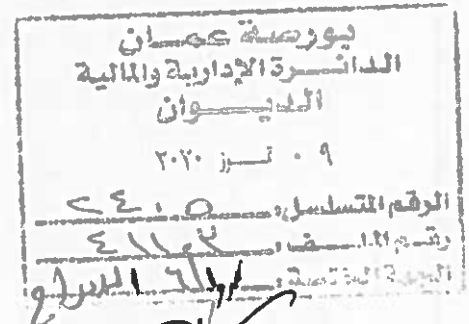 بورصة عمان
الدائسرة الإدارية والمالية
الديسوان
٠٩ تمسوز ٢٠٢٠
الرقم المتسلسل: ٢٤٠٥
رقم الملف: ٤١١٠٢
الجهة المختصة: